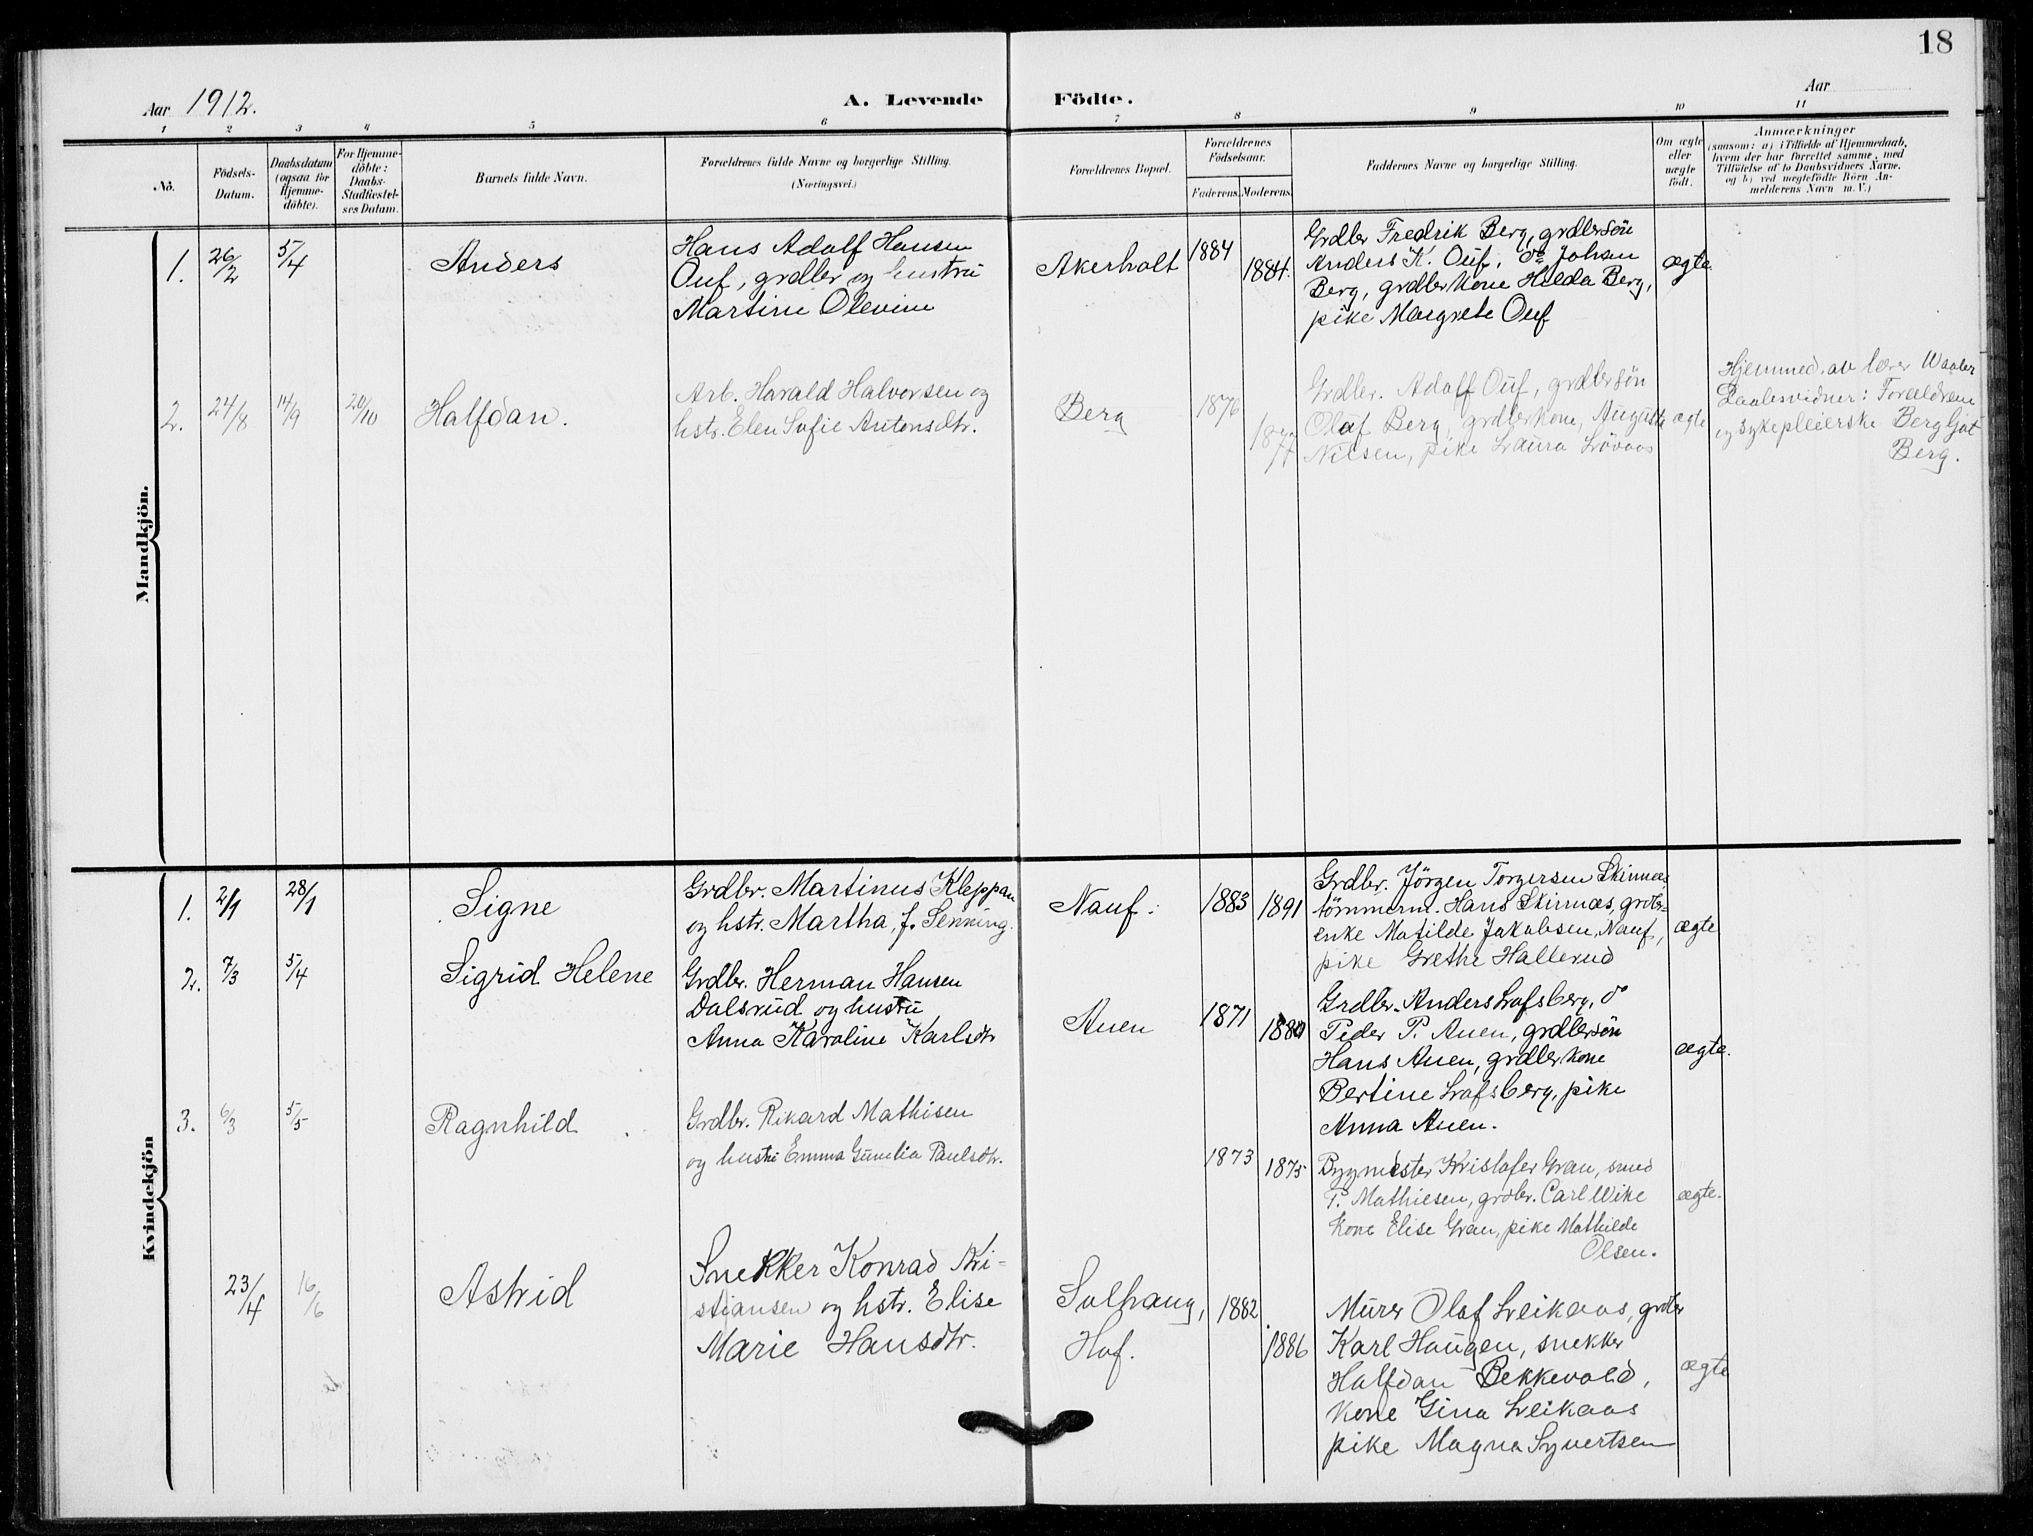 18
Aar 1912.
A. Levende Födte.
Aar
1 2 3 4 5 6 7 8 9 10 11
No.
Födsels-
Datum.
Daabsdatum
(ogsaa for
Hjemme-
döbte).
For Hjemme-
döbte:
Daabs-
Stadfæstel-
ses Datum.
Barnets fulde Navn.
Forældrenes fulde Navne og borgerlige Stilling.
(Næringsvei.)
Forældrenes Bopæl.
Forældrenes
Födselsaar.
Faderens. Moderens.
Faddernes Navne og borgerlige Stilling.
Om ægte
eller
uægte
födt.
Anmærkninger
(saasom: a) i Tilfælde af Hjemmedaab,
hvem der har forrettet samme, med
Tilföielse af to Daabsvidners Navne.
og b) ved uægtefödte Börn An-
melderens Navn m. V.)
Mandkjön.
1. 26/2 5/4
Anders
Hans Adolf Hansen
Ouf, grdbr og hustru
Martine Olevine
Akerholt
1884
1884.
Grdbr Fredrik Berg, grdbrsön
Anders K. Ouf, do Johan
Berg, grdbrkone Hilda Berg,
pike Margrete Ouf
ægte
2. 24/8 14/9 20/10
Halfdan.
Arb. Harald Halvorsen og
hstr. Elen Sofie Antonsdtr.
Berg
1876
1877
Grdbr. Adolf Ouf, grdbrsön
Oluf Berg, grdbrkone, Auguste
Nilsen, pike Laura Lövaas
ægte
Hjemmed. av lærer Waaler
Daabsvidner: Forældrene
og sykepleierske Bergljot
Berg.
Kvindekjön
1. 2/1 28/1
Signe
Grdbr. Martinus Kleppan
og hstr. Martha, f. Senning.
Nauf.
1883 1891
Grdbr. Jörgen Torgersen Skinnæs
tömmerm. Hans Skinnæs, grdbr-
enke Matilde Jakobsen, Nauf,
pike Grethe Hallerud
ægte
2. 7/3 5/4
Sigrid Helene
Grdbr. Herman Hansen
Dalsrud og hustru
Anna Karoline Karlsdtr
Auen
1871 1880
Grdbr. Anders Lofsberg, do
Peder P. Auen, grdbrsön
Hans Auen, grdbrkone
Bertine Lofsberg, pike
Anna Auen.
ægte.
3. 6/3 5/5
Ragnhild
Grdbr. Rikard Mathisen
og hustru Emma Gunelia Paulsdtr.
1873 1875
Bygmester Kristofer Gran, smed
P. Mathiesen, grdbr. Carl Wike
kone Elise Gran, pike Mathilde
Olsen.
ægte.
23/4 16/6
Astrid
Snekker Konrad Kri-
stiansen og hstr. Elise
Marie Hansdtr.
Solhaug,
Hof.
1882
1886
Murer Olaf Leikaas, grdbr
Karl Haugen, snekker
Halfdan Bekkevold,
kone Gina Leikaas
pike Magna Syvertsen
ægte